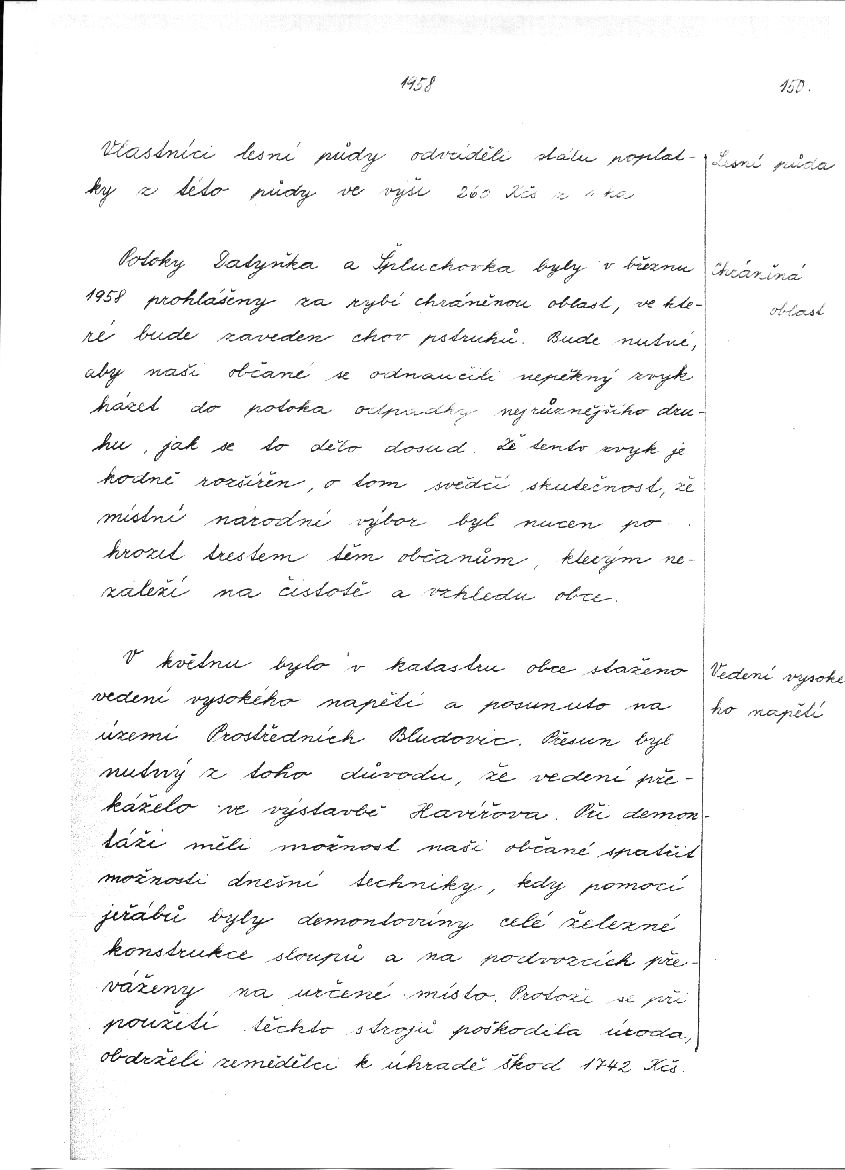 1958
150.
Vlastníci lesní půdy odváděli státu poplat-
ky z této půdy ve výši 260 Kčs z
Lesní půda
Potoky Datyňka a Špluchovka byly v březnu
1958 prohlášeny za rybí chráněnou oblast, ve kte-
ré bude zaveden chov pstruhů. Bude nutné,
aby naši občané se odnaučili nepěkný zvyk
házet do potoka odpadky nejrůznějšího dru-
hu, jak se to dělo dosud. Že tento zvyk je
hodně rozšířen, o tom svědčí skutečnost, že
místní národní výbor byl nucen po-
hrozit trestem těm občanům, kterým ne-
záleží na čistotě a vzhledu obce.
Chráněná
oblast
V květnu bylo v katastru obce staženo
vedení vysokého napětí a posunuto na
území Prostředních Bludovic. Přesun byl
nutný z toho důvodu, že vedení pře-
káželo ve výstavbě Havířova. Při demon-
táži měli možnost naši občané spatřit
možnosti dnešní techniky, kdy pomocí
jeřábů byly demontovány celé železné
konstrukce sloupů a na podvozcích pře-
váženy na určené místo. Protože se při
použití těchto strojů poškodila úroda,
obdrželi zemědělci k úhradě škod 1742 Kčs.
Vedení vysoké
ho napětí